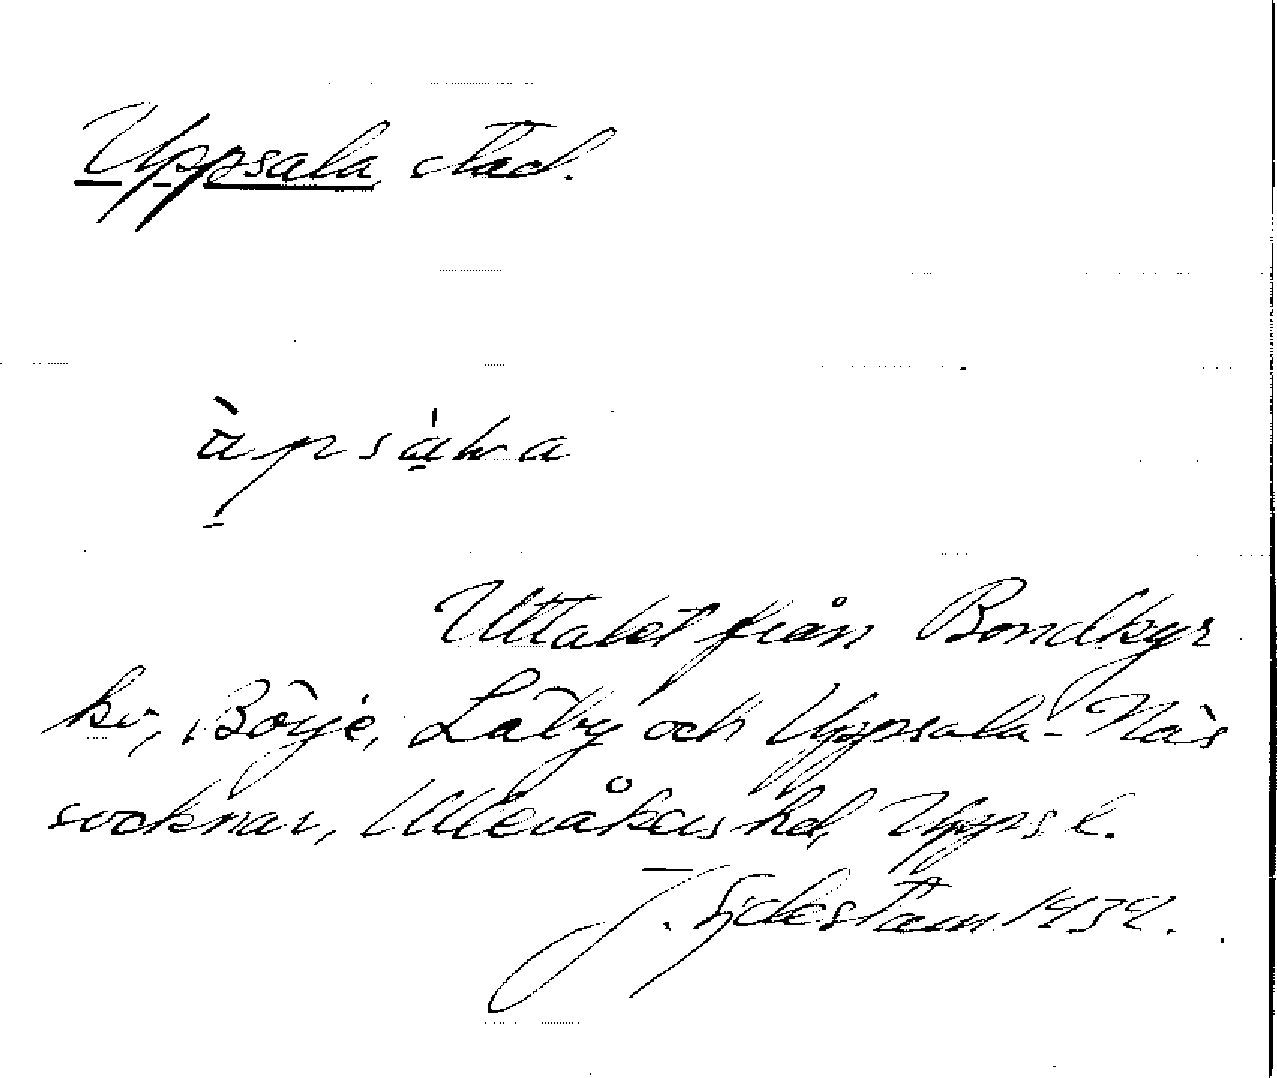 Uppsala stad.
àpsáka
Uttalet från Bondkyr
ko, Börje, Läby och Uppsala-Näs
socknar, Ulleråkers hd, Upps. l.
J. Sjdestam 1932.